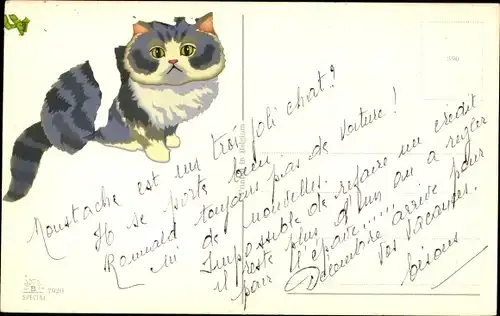 Moustache est un très joli chat !
Il se porte bien
Romuald toujours pas de voiture !
ni de nouvelles.
Impossible de refaire un crédit
il reste plus d'un an a régler
par l'épave !!!!!!
Décembre arrive pour
tes vacances.
bisous
Printed in Belgium
7920
SPECIAL